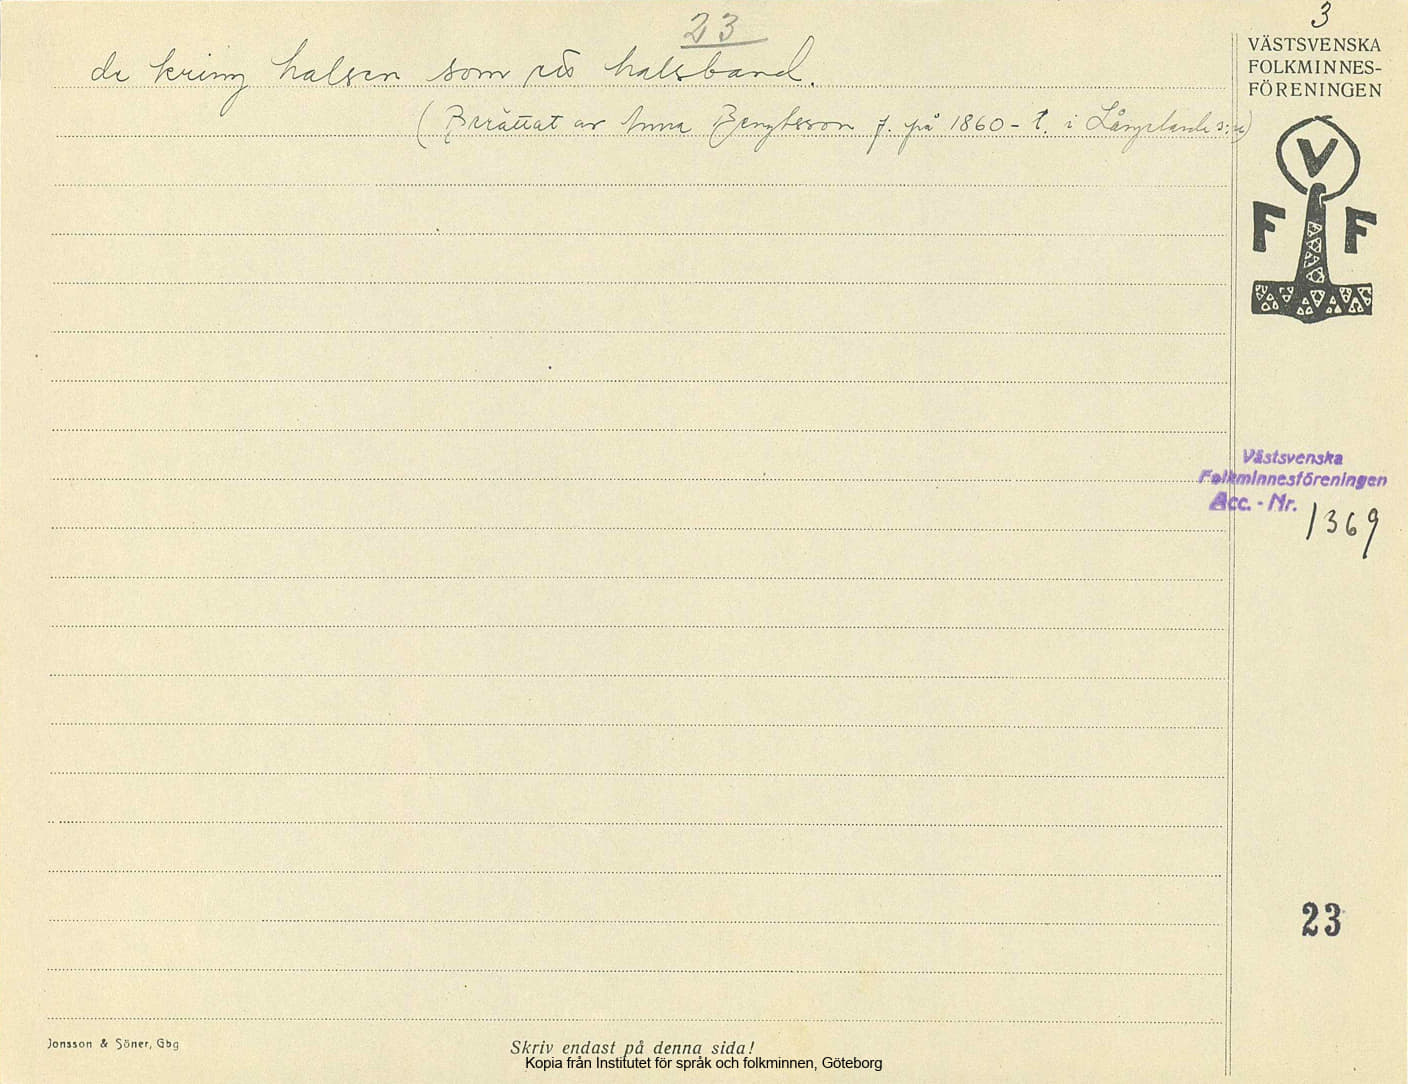 23
3
de kring halsen som ett halsband.
(Berättat av Anna Bengtsson f. på 1860-t. i Långelanda s:n)
VÄSTSVENSKA
FOLKMINNES-
FÖRENINGEN
V
F F
Västsvenska
Folkminnesföreningen
Acc. - Nr. 1369
23
Jonsson & Söner, Gbg
Skriv endast på denna sida!
Kopia från Institutet för språk och folkminnen, Göteborg